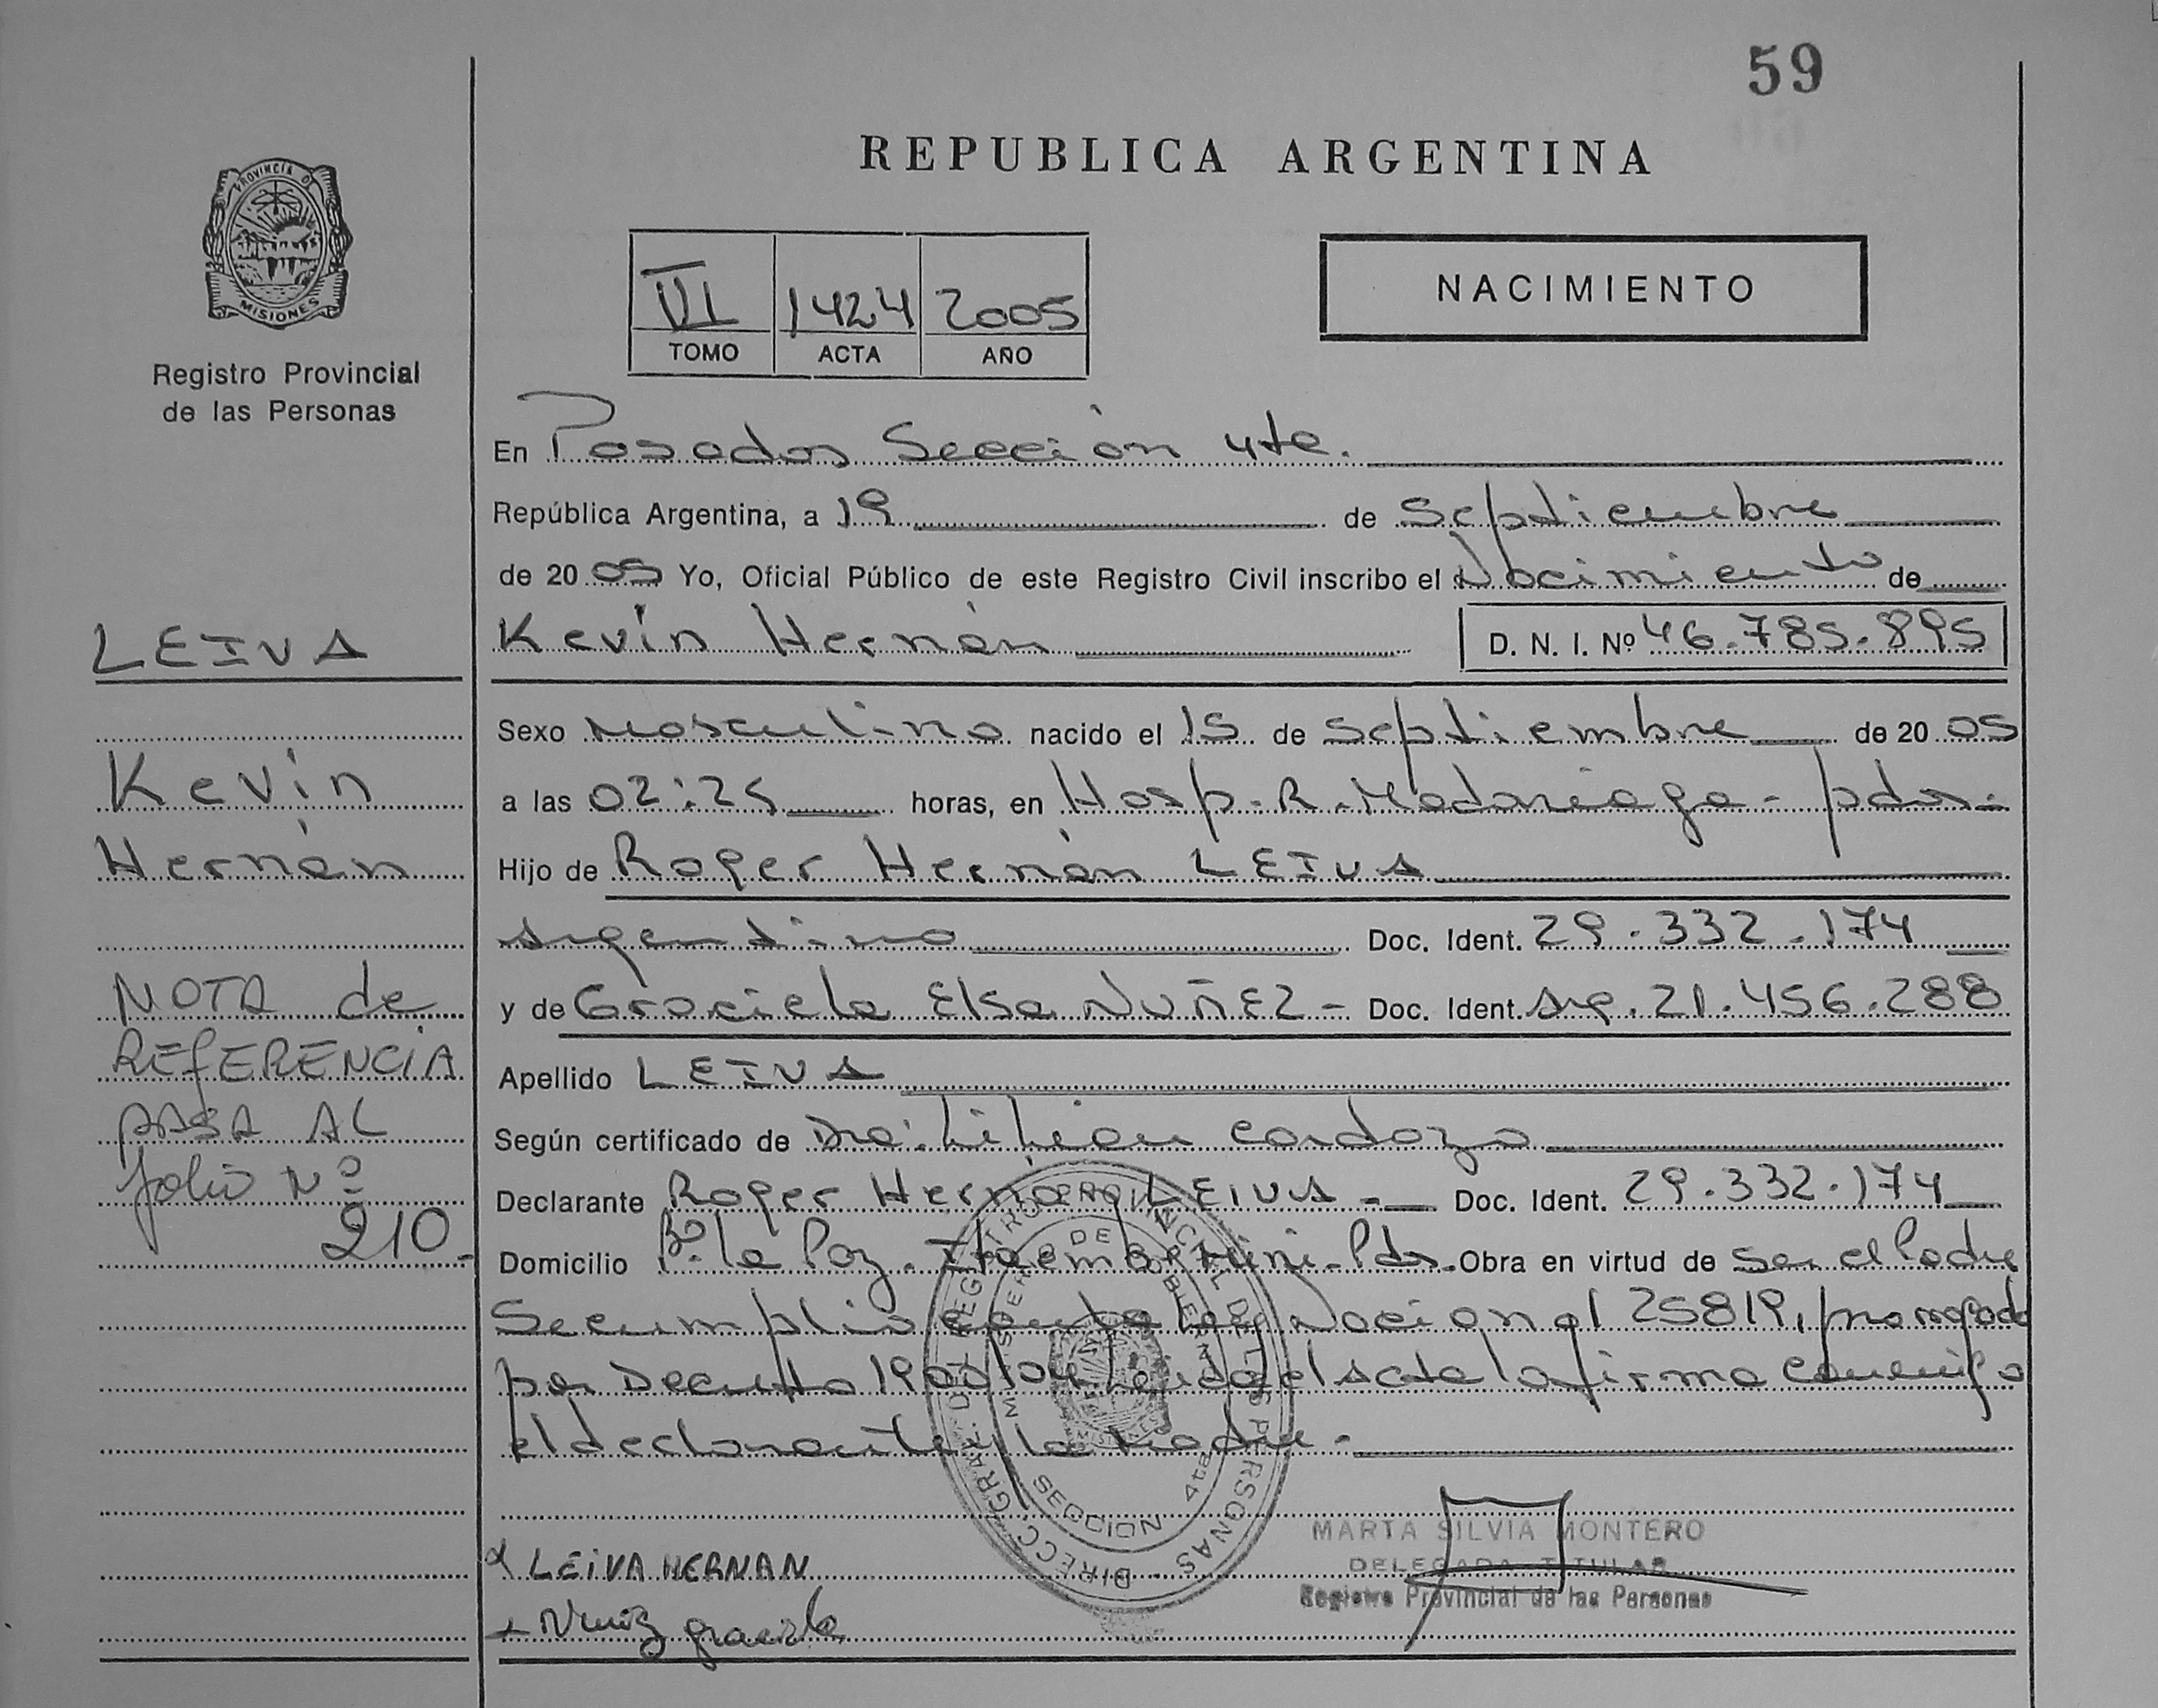 59
REPUBLICA ARGENTINA
PROVINCIA DE
MISIONES
Registro Provincial
de las Personas
VI 1424 2005
TOMO ACTA AÑO
NACIMIENTO
En Posadas Sección 4ta.
República Argentina, a 19 de Septiembre
de 20 05 Yo, Oficial Público de este Registro Civil inscribo el Nacimiento de
Kevin Hernán D. N. I. Nº 46.785.895
Sexo Masculino nacido el 15 de Septiembre de 20 05
a las 02:25 horas, en Hosp. R. Madariaga - pdas.
Hijo de Roger Hernán LEIVA
Argentino Doc. Ident. 29.332.174
y de Graciela Elsa NUÑEZ - Doc. Ident. Arg. 21.456.288
Apellido LEIVA
Según certificado de Dra. Lilian Cardozo
Declarante Roger Hernán LEIVA - Doc. Ident. 29.332.174
Domicilio Bº la Paz. Itaembe mini - Pdas. Obra en virtud de ser el Padre
Se cumplio con la Ley Nacional 25819, prorrogada
por Decreto 1900/04 Leida el acta la firma conmigo
el declarante y la Madre -
LEIVA
Kevin
Hernán
NOTA de
REFERENCIA
PASA AL
folio Nº
210.
LEIVA HERNAN
Nuñez graciela
DIRECC. GRAL. DEL REGISTRO PROVINCIAL DE LAS PERSONAS
SECCION 4ta
MARTA SILVIA MONTERO
DELEGADA TITULAR
Registro Provincial de las Personas